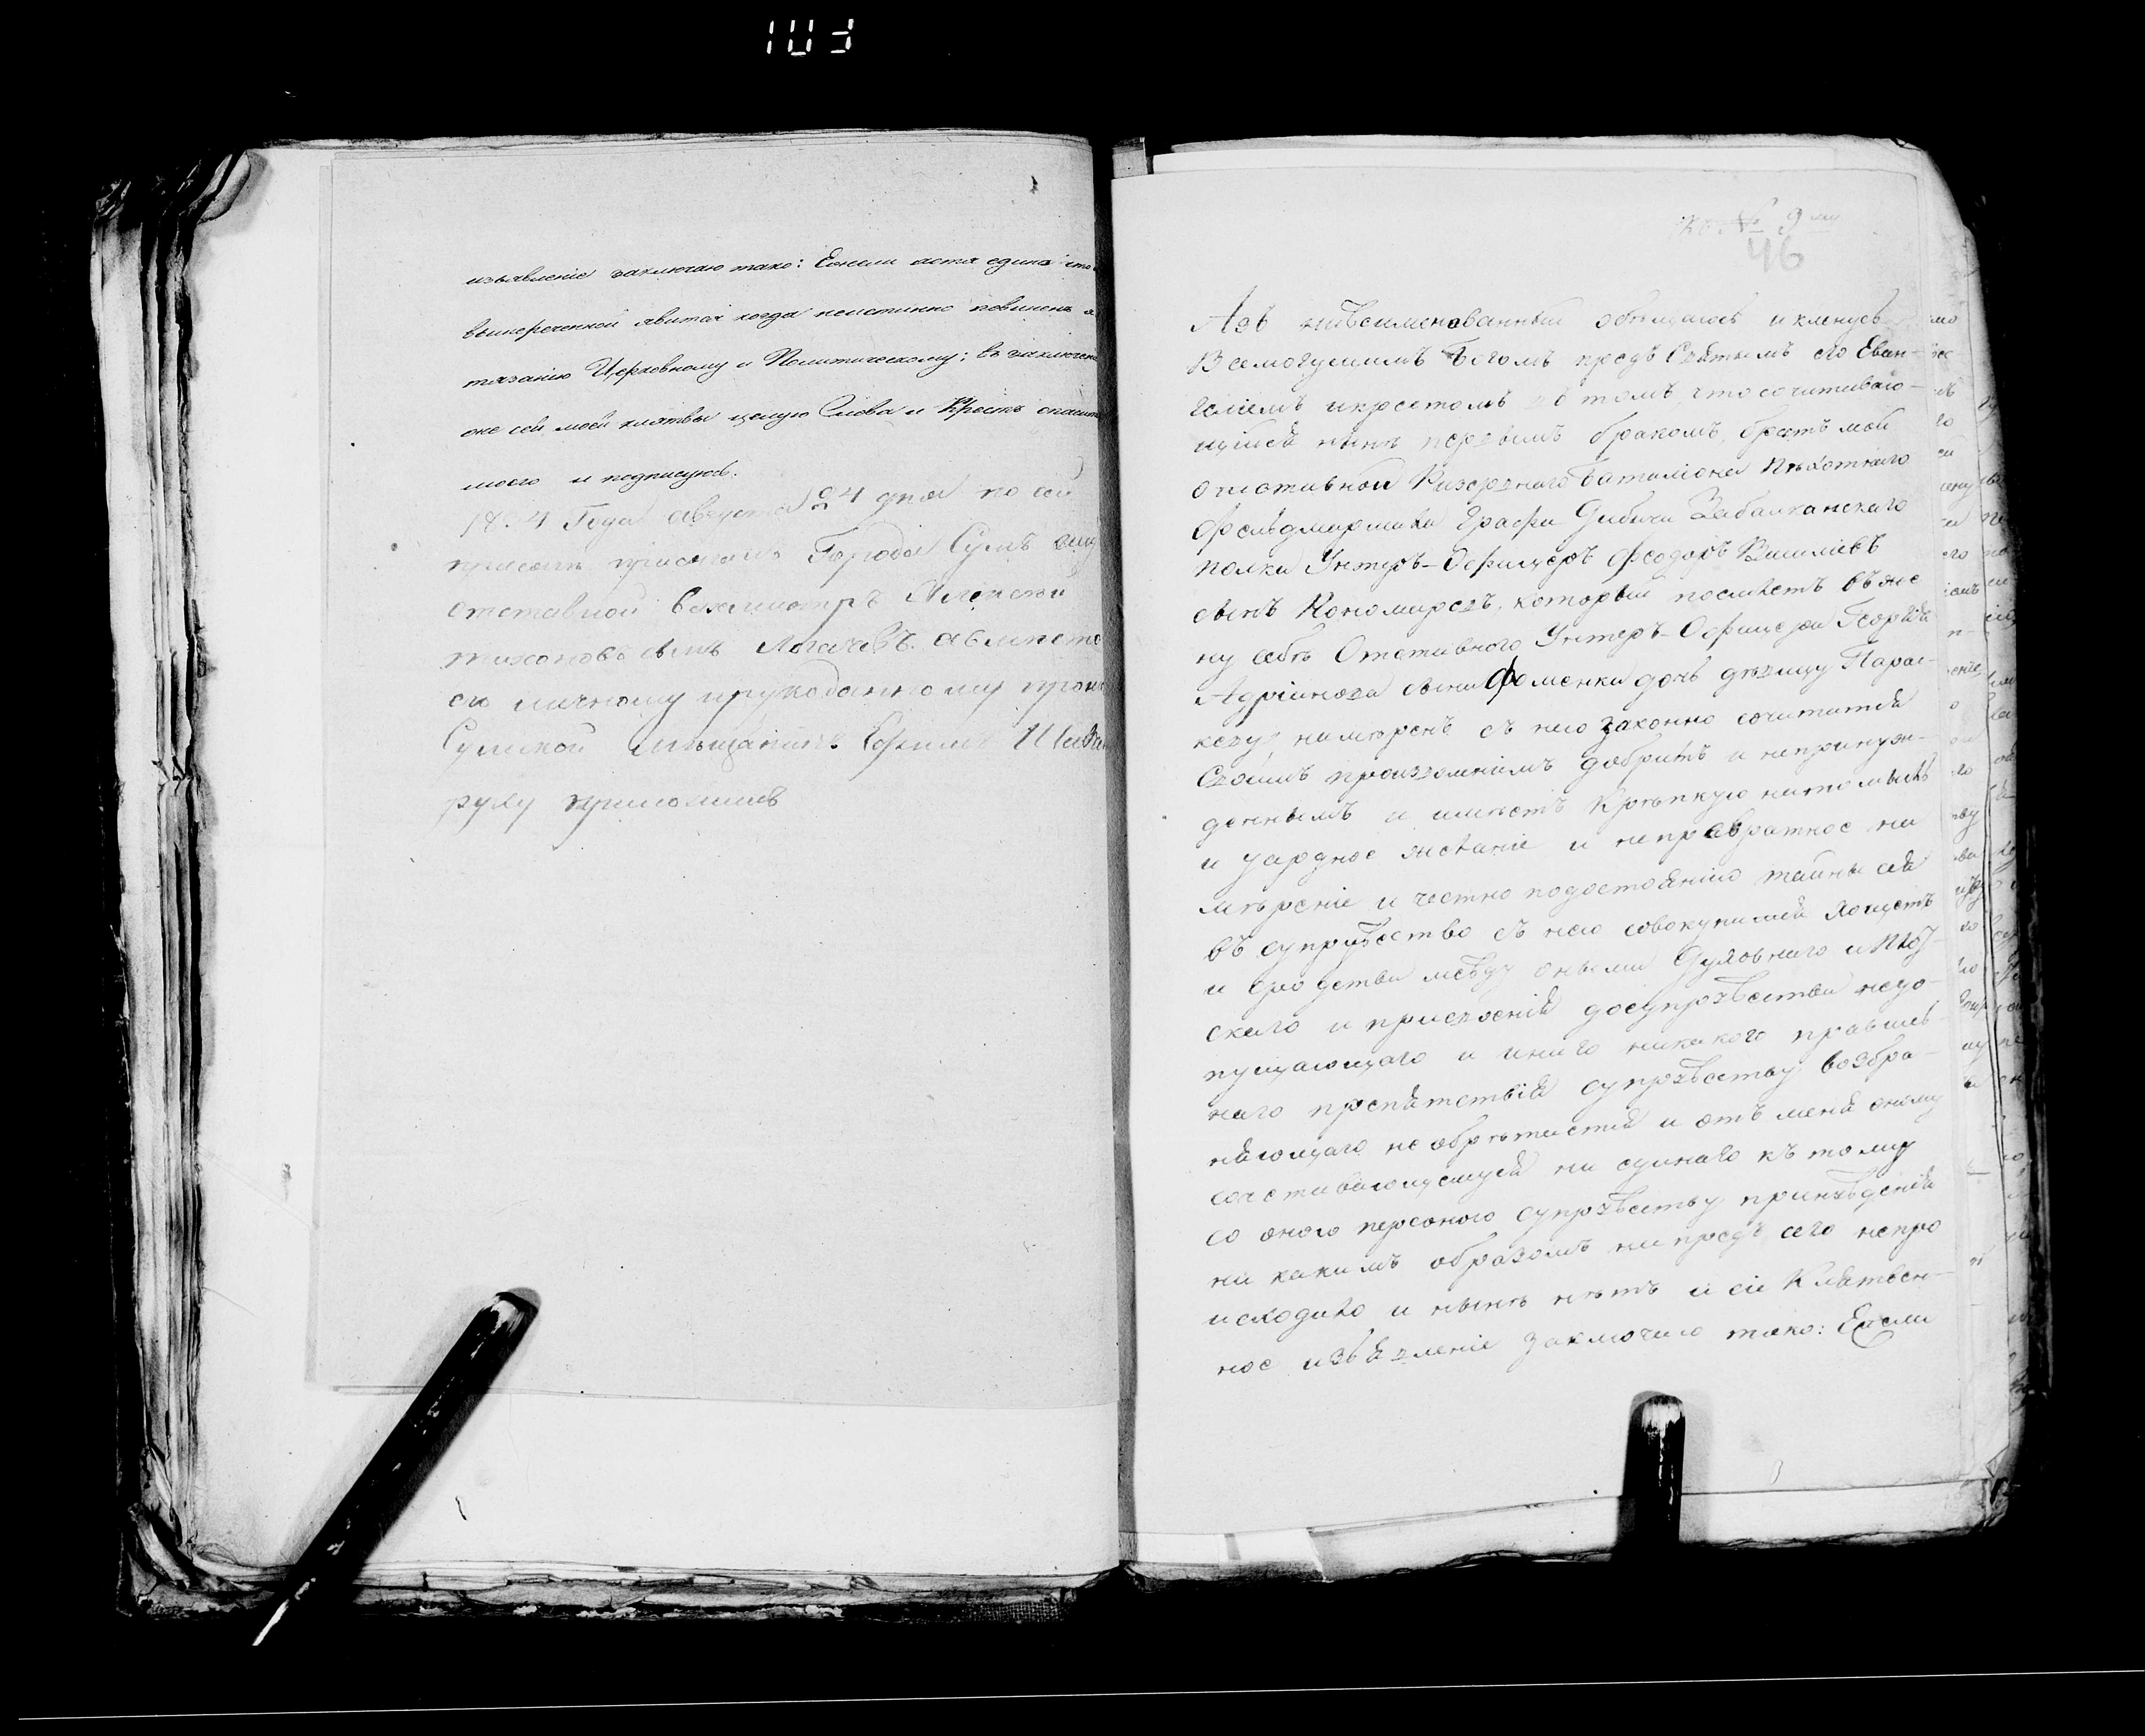 103
изъявленіе заключаю тако: Ежели хотя едино что
вышереченной явится когда неистинно повиненъ
тязанію Церковному и Политическому; въ заключе
же сей моей клятвы цѣлую Слова и Крестъ спасит
моего и подписуюсь.
Года августа 4 дня по сей
присягѣ присягалъ Города Сумъ
отставной вахмистръ
тихоновъ сынъ Логачевъ. а вмѣсто
его личному и рукоданному прош
Сумской мѣщанинъ Ефимъ
руку приложилъ
Ко № 9му
46
Азъ нижеименованный обѣщаюсь и кленусь
Всемогущимъ Богомъ предъ Святымъ его Еван-
геліемъ и крестомъ въ томъ, что сочитаваю-
щійся нынѣ первымъ бракомъ, братъ мой
отставной Резервнаго баталіона Пѣхотнаго
Фельдмаршала Графа Дибича Забалканскаго
полка Унтеръ-Офицеръ Феодоръ Василіевъ
сынъ Кономаревъ, который поемлетъ въ же
ну себѣ Отставного Унтеръ-Офицера Георгія
Адріанова сына Фоменки дочь дѣвицу Парас-
кеву, намѣренъ съ нею законно сочитатся
Своимъ произволеніемъ добрымъ и непринуж-
деннымъ и имѣетъ крѣпкую на то мысль
и усердное желаніе и непревратное на
мѣреніе и честно по достоянію тайны сея
въ супружество съ нею совокупится хощетъ
и сродства между оными Духовнаго и плот-
скаго и присвоенія до супружества недо-
пущающаго и инаго никакого правиль-
наго препятствія супружеству возбра-
няющаго не обрѣтается и отъ меня оному
сочетавающемуся ни единаго къ тому
со оною персоною супружеству принужденія
ни какимъ образомъ ни предъ сего непро
исходило и нынѣ нѣтъ и сіе Клятвен-
ное изъявленіе заключаю тако: Ежели